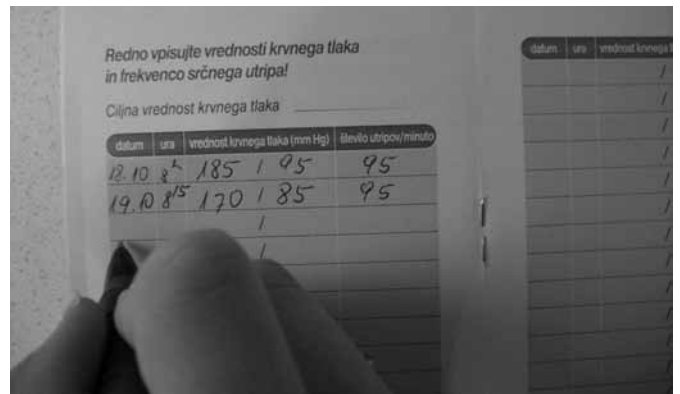 Redno vpisujte vrednosti krvnega tlaka
in frekvenco srčnega utripa!
Ciljna vrednost krvnega tlaka
datum ura vrednost krvnega tlaka (mm Hg) število utripov/minuto
18.10 8h 185 / 95 95
19.10 8 15 170 / 85 95
/
/
datum ura vrednost krvnega
/
/
/
/
/
/
/
/
/
/
/
/